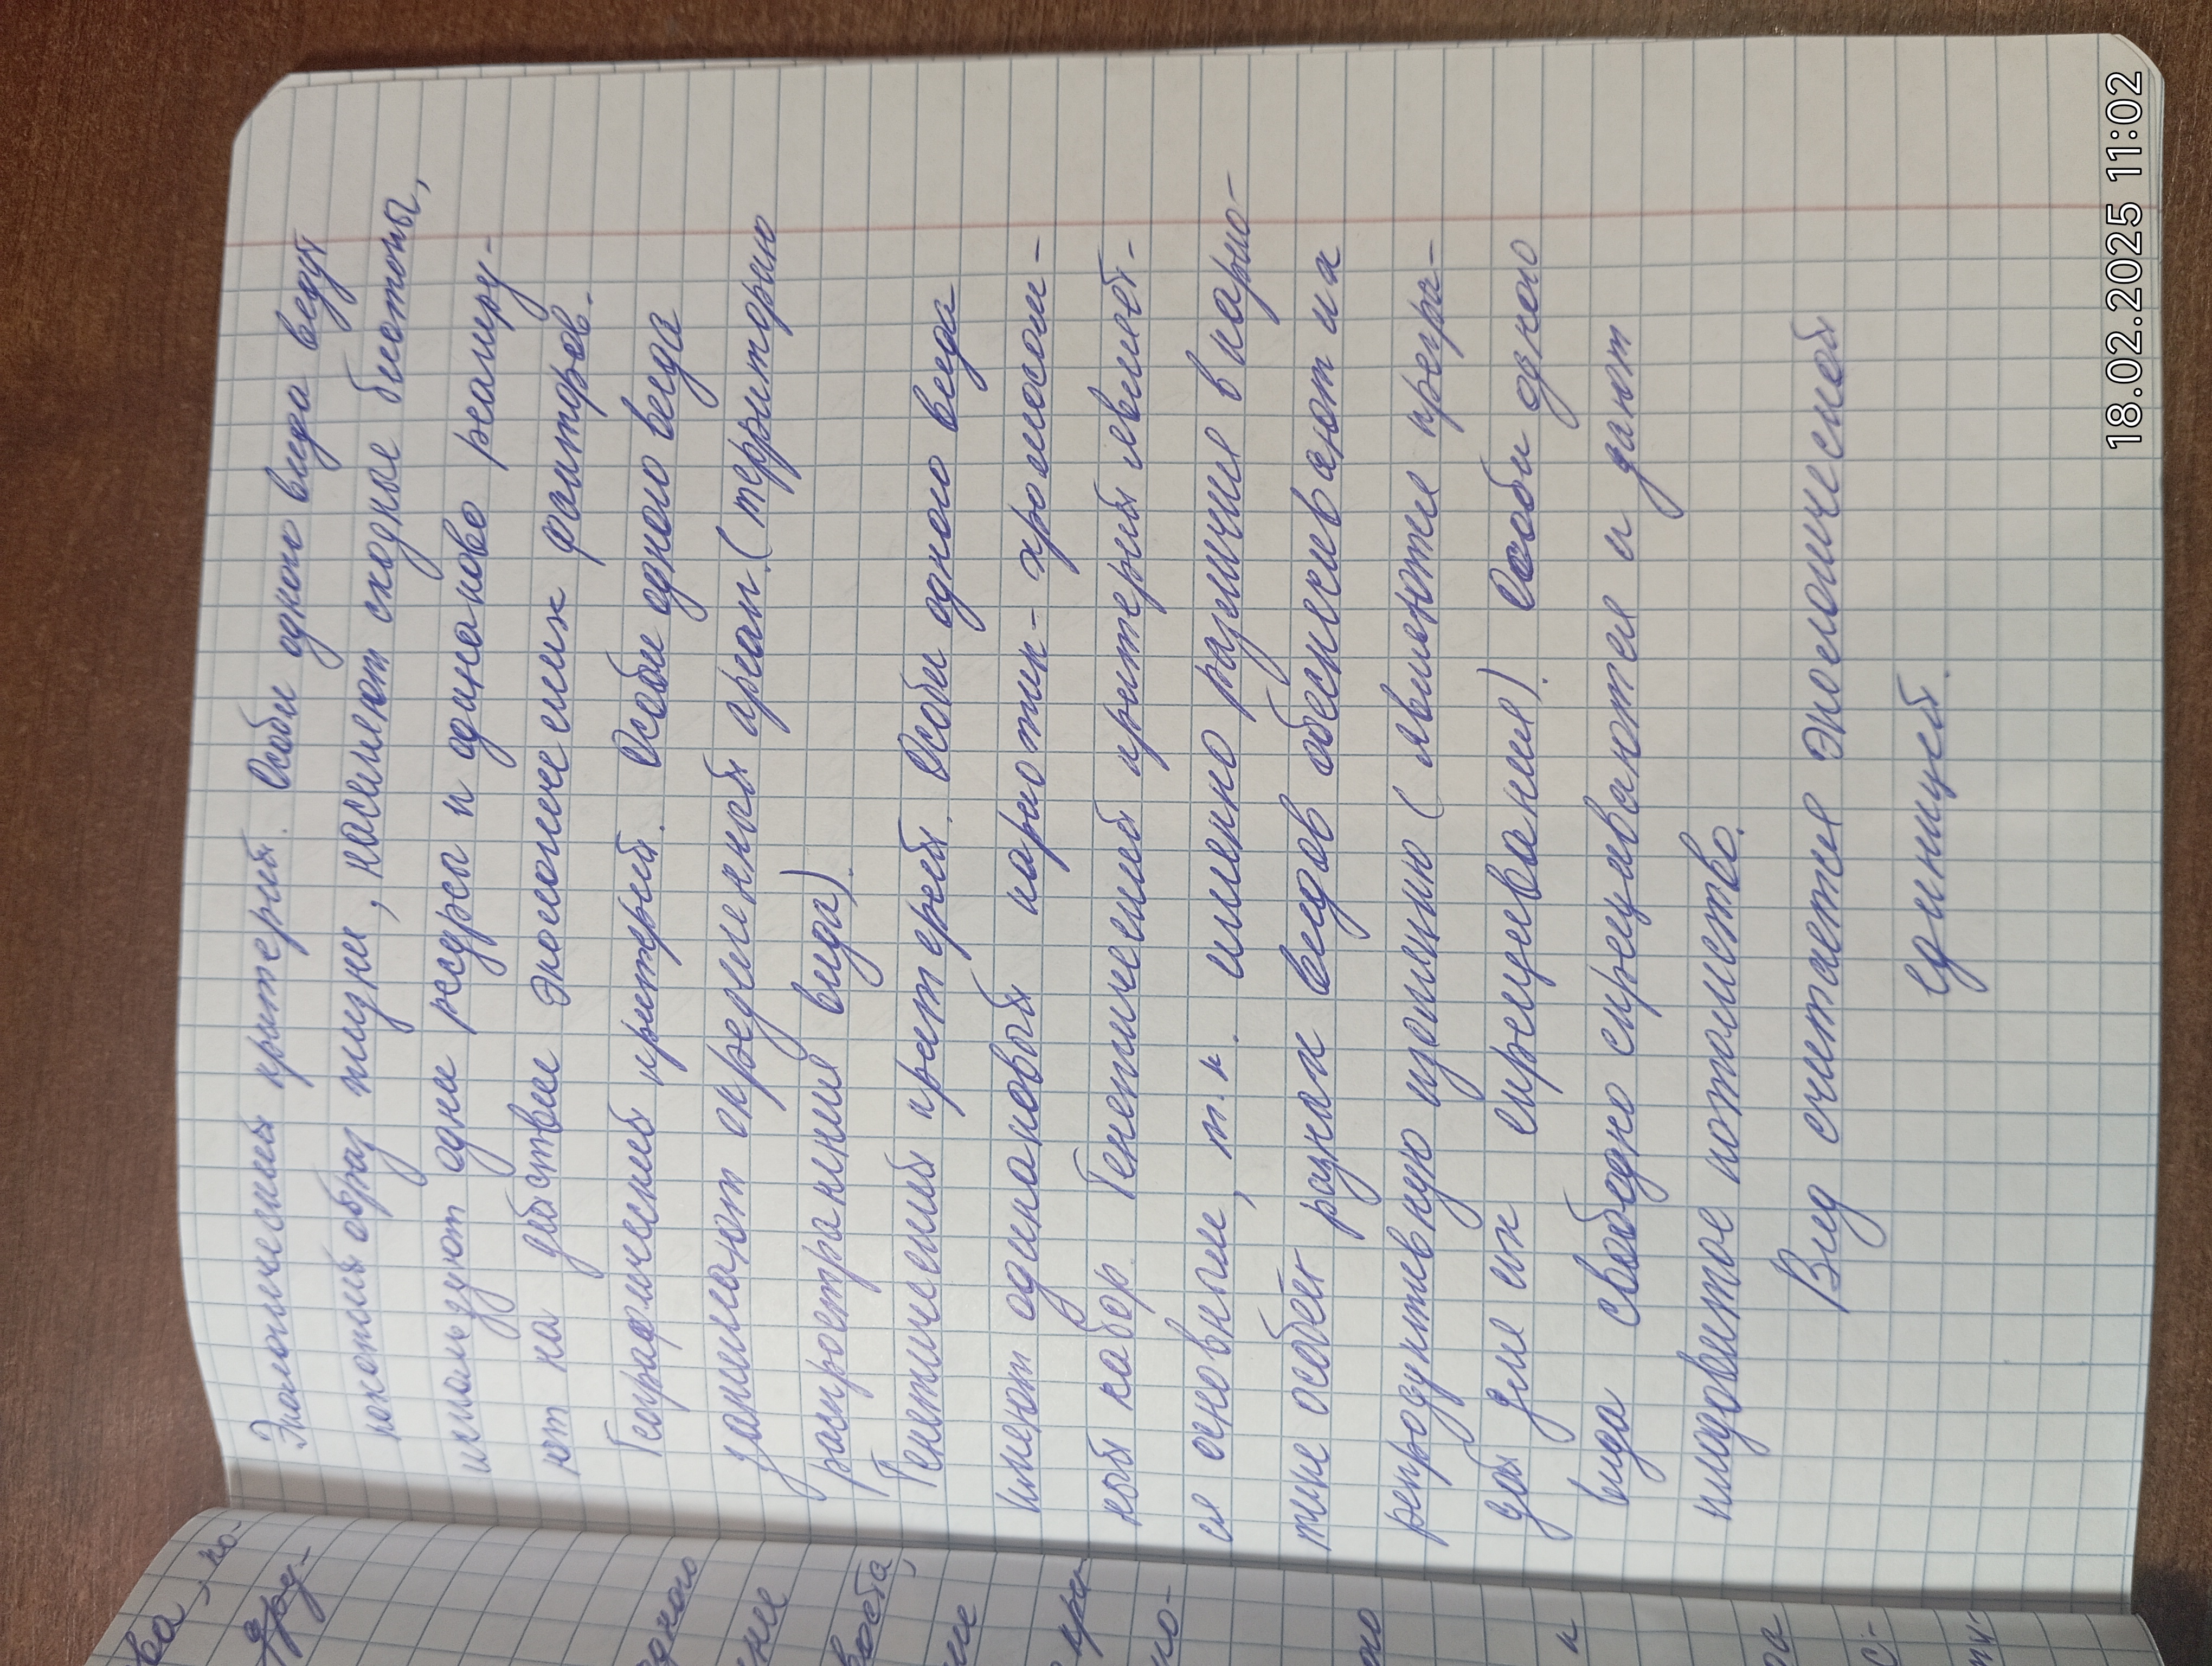 Экологический критерий. Особи одного вида ведут
похожий образ жизни, населяют сходные биотопы,
используют одни ресурсы и одинаково реагиру-
ют на действие экологических факторов.
Географический критерий. Особи одного вида
занимают определенный ареал (территорию
распространения вида).
Генетический критерий. Особи одного вида
имеют одинаковый кариотип - хромосом-
ный набор. Генетический критерий являет-
ся основным, т.к. именно различия в карио-
типе особей разных видов обеспечивают их
репродуктивную изоляцию (являются прегра-
дой для их скрещивания). Особи одного
вида свободно скрещиваются и дают
плодовитое потомство.
Вид считается экологической
единицей.
ва, по-
дру-
одного
хвоста,
кри-
и
18.02.2025 11:02